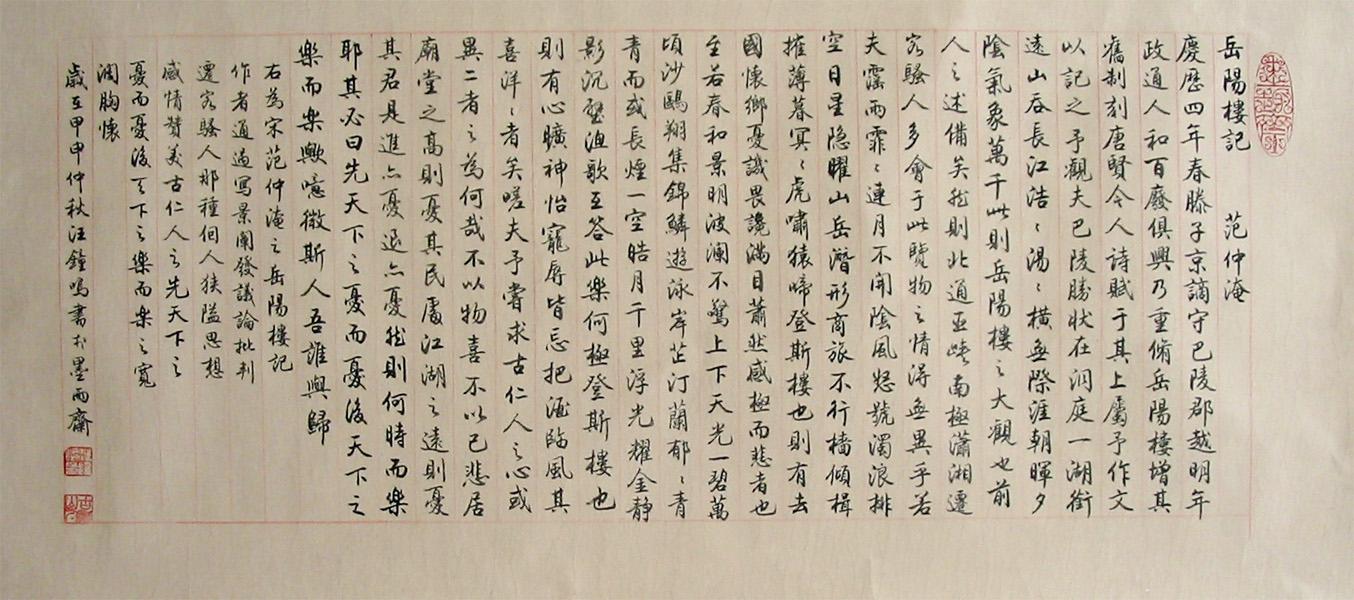 岳陽樓記 范仲淹
慶歷四年春滕子京謫守巴陵郡越明年
政通人和百廢俱興乃重脩岳陽樓增其
舊制刻唐賢今人詩賦于其上屬予作文
以記之予觀夫巴陵勝狀在洞庭一湖銜
遠山吞長江浩〻湯〻橫無際涯朝暉夕
陰氣象萬千此則岳陽樓之大觀也前
人之述備矣然則北通巫峽南極瀟湘遷
客騷人多會于此覽物之情得無異乎若
夫霪雨霏〻連月不開陰風怒號濁浪排
空日星隐曜山岳潛形商旅不行檣傾楫
摧薄暮冥〻虎嘯猿啼登斯樓也則有去
國懷鄉憂譏畏讒滿目蕭然感極而悲者也
至若春和景明波瀾不驚上下天光一碧萬
頃沙鷗翔集錦鱗遊泳岸芷汀蘭郁〻青
青而或長煙一空皓月千里浮光耀金静
影沉璧漁歌互答此樂何極登斯樓也
則有心曠神怡寵辱皆忘把酒臨風其
喜洋〻者矣嗟夫予嘗求古仁人之心或
異二者之為何哉不以物喜不以己悲居
廟堂之高則憂其民處江湖之遠則憂
其君是進亦憂退亦憂然則何時而樂
耶其必曰先天下之憂而憂後天下之
樂而樂歟噫微斯人吾誰與歸
右為宋范仲淹之岳陽樓記
作者通過寫景闡發議論批判
遷客騷人那種個人狹隘思想
感情贊美古仁人之先天下之
憂而憂後天下之樂而樂之寬
濶胸懷
歲在甲申仲秋汪鐘鳴書於墨雨齋